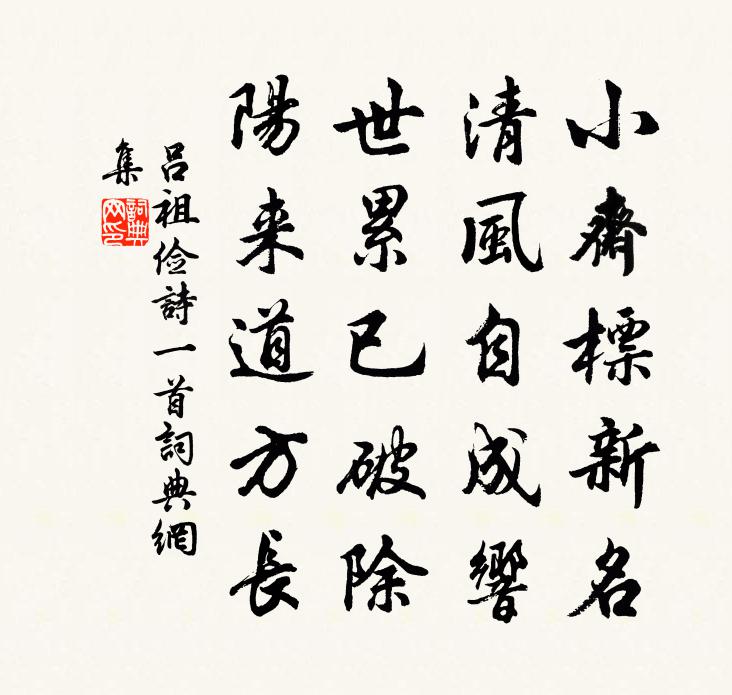 小齋標新名
清風自成響
世累已破除
陽来道方長
呂祖儉詩一首詞典網
集
詞典網印